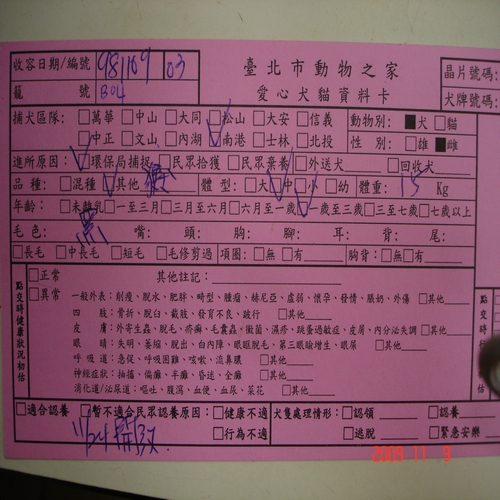 臺北市動物之家
愛心犬貓資料卡
收容日期/編號 981109 03
籠 號 B04
晶片號碼:
犬牌號碼:
捕犬區隊: □萬華 □中山 □大同 □松山 □大安 □信義 動物別: ■犬 □貓
□中正 □文山 □內湖 □南港 □士林 □北投 性 別: □雄 ■雌
進所原因: □環保局捕捉 □民眾拾獲 □民眾棄養 □外送犬 □回收犬
品 種: □混種 □其他 體 型: □大 □中 □小 □幼 體重: 15 Kg
年齡: □未離乳 □一至三月 □三月至六月 □六月至一歲 □一歲至三歲 □三至七歲 □七歲以上
毛色: 黑 嘴: 頭: 胸: 腳: 耳: 背: 尾:
□長毛 □中長毛 □短毛 □毛修剪過 項圈: □無 □有 胸背: □無 □有
點交時健康狀況初估
□正常
□異常
其他註記:
一般外表: 削瘦、脫水、肥胖、畸型、腫瘤、赫尼亞、虛弱、懷孕、發情、脹奶、外傷 □其他
四 肢: 骨折、脫臼、截肢、發育不良、跛行 □其他
皮 膚: 外寄生蟲、脫毛、疥癬、毛囊蟲、黴菌、濕疹、跳蚤過敏症、皮屑、內分泌失調 □其他
眼 睛: 失明、萎縮、脫出、白內障、眼眶脫毛、第三眼瞼增生、眼屎 □其他
呼 吸 道: 急促、呼吸困難、咳嗽、流鼻膿 □其他
神經症狀: 抽搐、偏癱、半癱、昏迷、全癱 □其他
消化道/泌尿道: 嘔吐、腹瀉、血便、血尿、菜花 □其他
□適合認養 □暫不適合民眾認養原因: □健康不適 犬隻處理情形: □認領 □認養
□行為不適 □逃脫 □緊急安樂
11/24 開放
2009 11 9